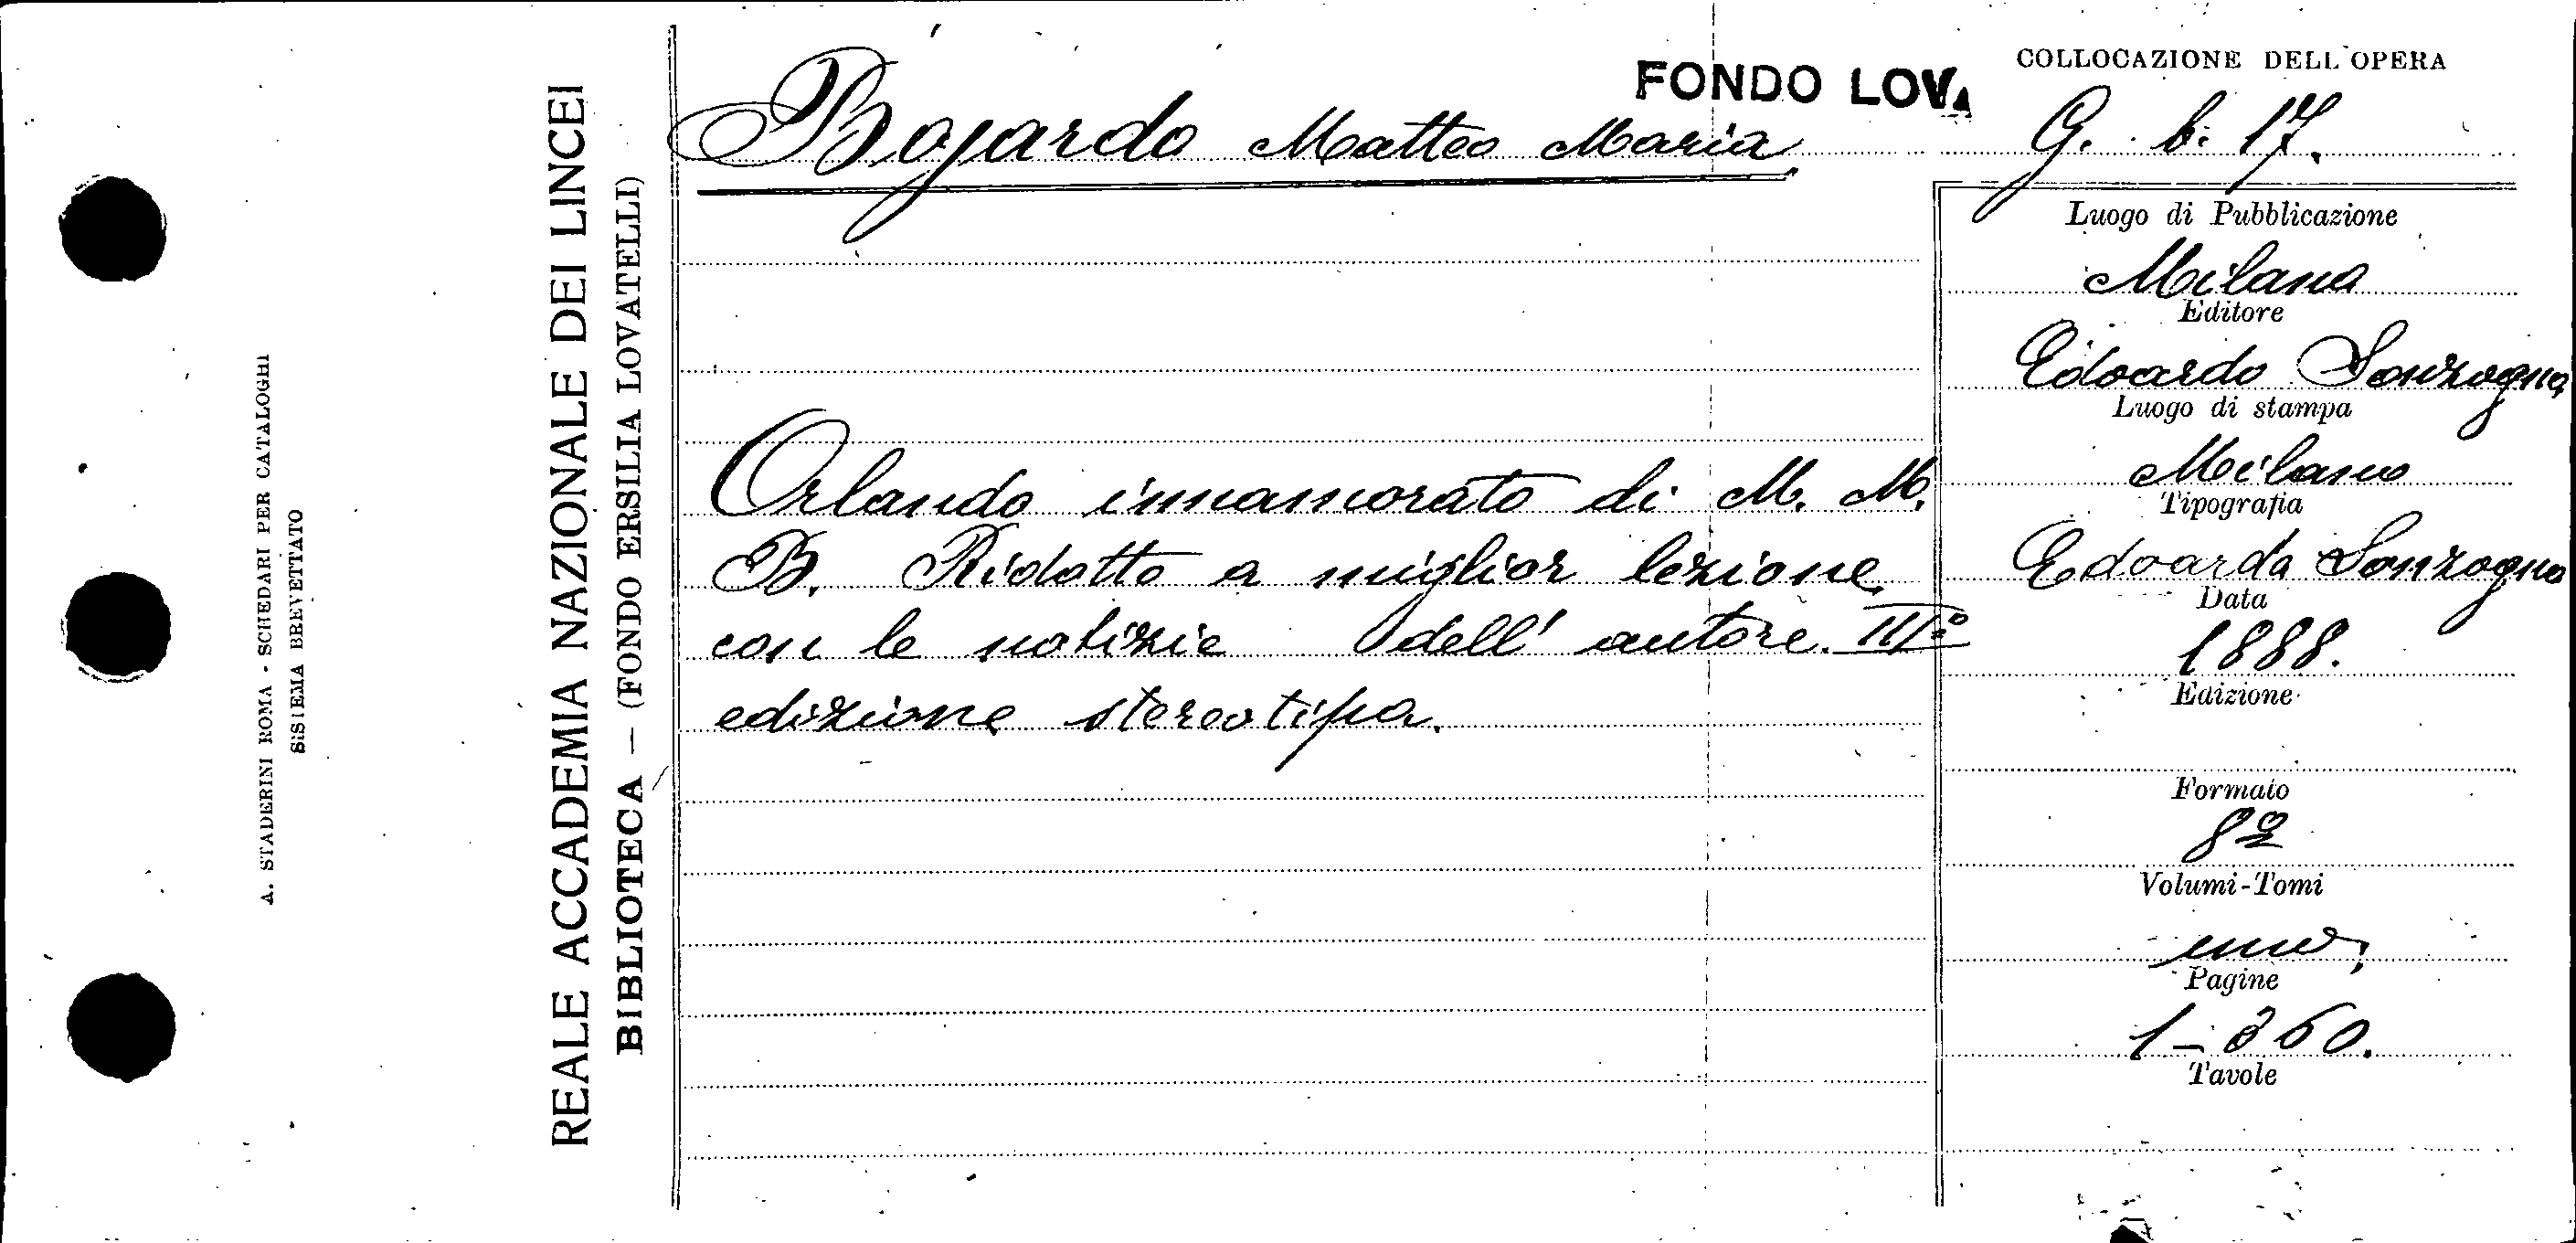 A. STADERINI ROMA - SCHEDARI PER CATALOGHI
SISTEMA BREVETTATO
REALE ACCADEMIA NAZIONALE DEI LINCEI
BIBLIOTECA — (FONDO ERSILIA LOVATELLI)
FONDO LOVA
Bojardo Matteo Maria
Orlando innamorato di M. M.
B. Ridotto a miglior lezione
con le notizie dell' autore. IIIª
edizione stereotipa.
COLLOCAZIONE DELL'OPERA
G. b. 17.
Luogo di Pubblicazione
Milano
Editore
Edoardo Sonzogno
Luogo di stampa
Milano
Tipografia
Edoardo Sonzogno
Data
1888.
Edizione
Formato
8º
Volumi-Tomi
uno.
Pagine
1-360.
Tavole